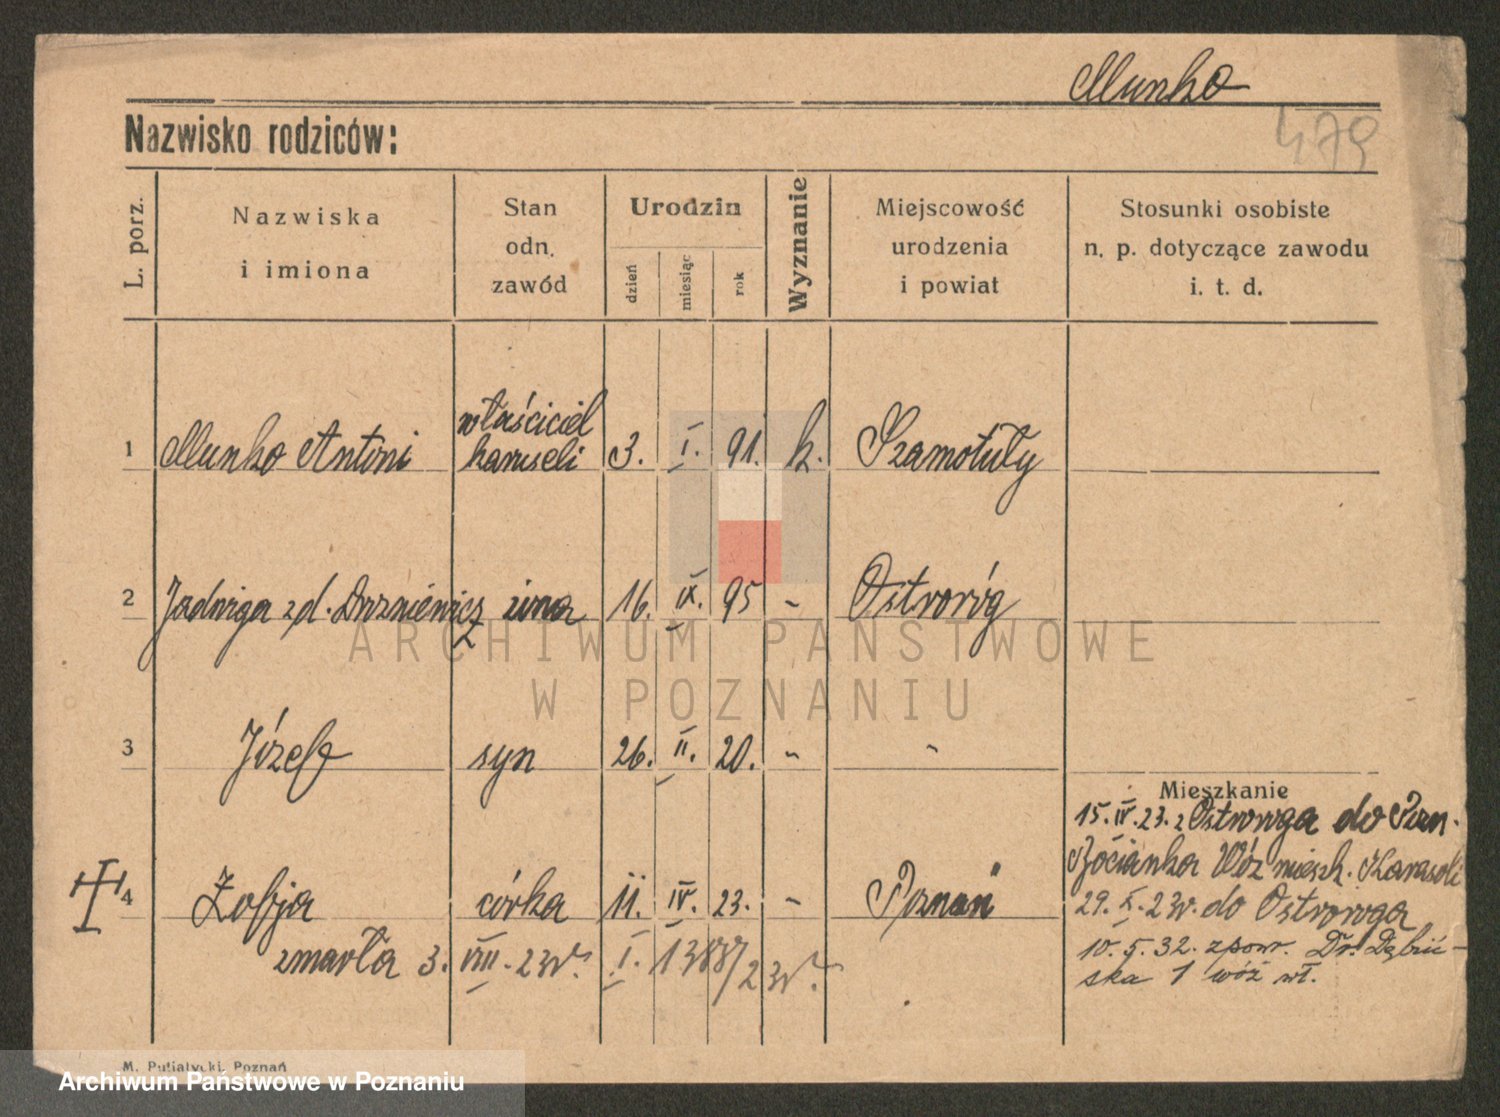 Munko
479
Nazwisko rodziców:
L. porz.
Nazwiska
i imiona
Stan
odn.
zawód
Urodzin
dzień
miesiąc
rok
Wyznanie
Miejscowość
urodzenia
i powiat
Stosunki osobiste
n. p. dotyczące zawodu
i. t. d.
1 Munko Antoni właściciel karuseli 3. I. 91. k. Szamotuły
2 Jadwiga zd. żona 16. IX. 95 - Ostroróg
3 Józef syn 26. II. 20. - -
Mieszkanie
15. IV. 23. z Ostroroga do Pozn.
Wóz mieszk. Karaseli
4 Zofja córka 11. IV. 23. - Poznań
29. X. 23r. do Ostroroga
zmarła 3. VIII. 23r. I. 1388/23r.
10. 5. 32. zpow. Dr. Dąbrówska 1 wóz wł.
ARCHIWUM PAŃSTWOWE
W POZNANIU
M. Putiatycki, Poznań
Archiwum Państwowe w Poznaniu